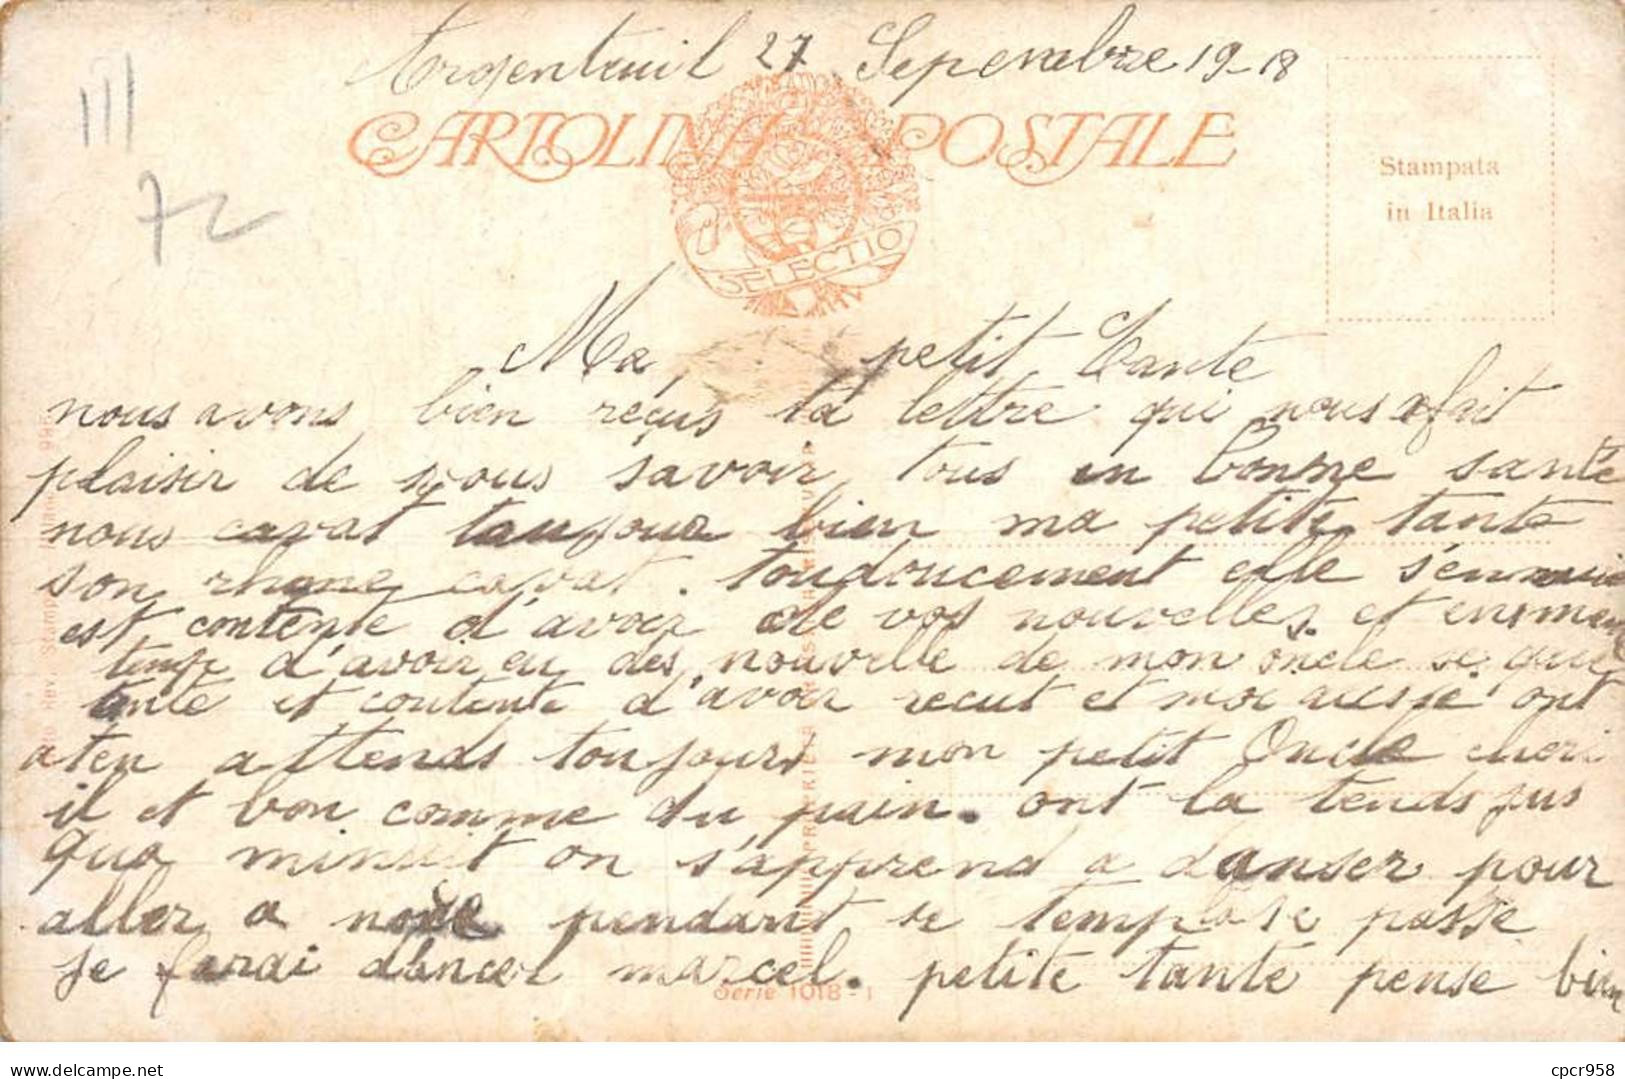 Argenteuil 27 Sepenmbre 19-18
III
72
CARTOLINA POSTALE
SELECTIO
Stampata
in Italia
Ma petit Tante
nous avons bien reçus ta lettre qui nous a fait
plaisir de vous savoir tous en bonne santé
nous cavat toujour bien ma petite tante
son rhume cavat. toudoucement elle s'ennuie
est contente d'avoir de vos nouvelles. et en
temp d'avoir eu des nouvelle de mon oncle
tante et contente d'avoir recut et moi aussie ont
aten attends toujours mon petit Oncle cheri
il et bon comme du pain. ont la tends jus
qua minuit on s'apprend a danser pour
aller a pendant se temps la se passe
je ferai dancer marcel. petite tante pense bien
Serie 1018-1